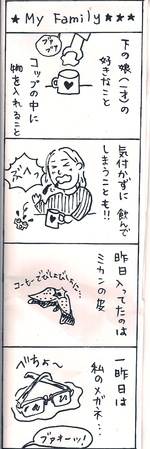 ★ My Family ★★★
下の娘(一才)の
好きなこと
コップの中に
物を入れること
ブァ
ブァ
気付かずに 飲んで
しまうことも!!
ブハッ
昨日入ってたのは
ミカンの皮
コーヒーでびしょびしょだ…
一昨日は
私のメガネ…
べちょ〜
ブァオーッ!